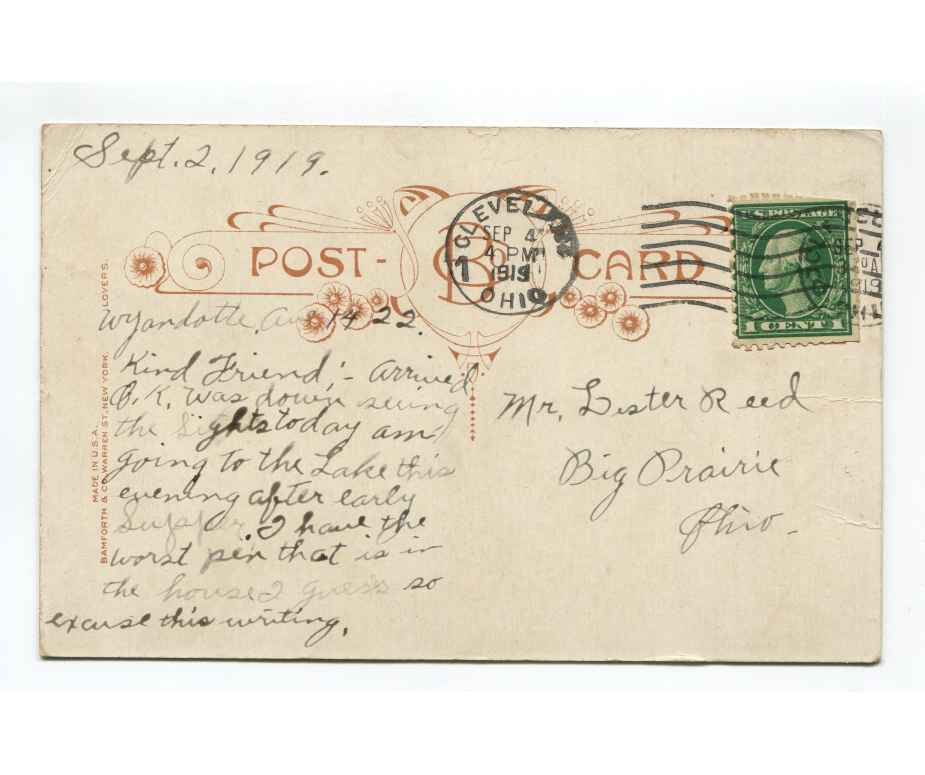 Sept. 2, 1919.
POST-CARD
B
CLEVELAND
SEP 4
4 PM
1919
OHIO
1
U.S. POSTAGE
1 CENT 1
Wyandotte, Ave 1422.
Kind Friend;- Arrived
O.K. Was down seeing
the Sights today am
going to the Lake this
evening after early
Supper. I have the
worst pen that is in
the house I guess so
excuse this writing.
Mr. Lester Reed
Big Prairie
Ohio-
LOVERS.
MADE IN U.S.A.
BAMFORTH & CO. WARREN ST., NEW YORK.